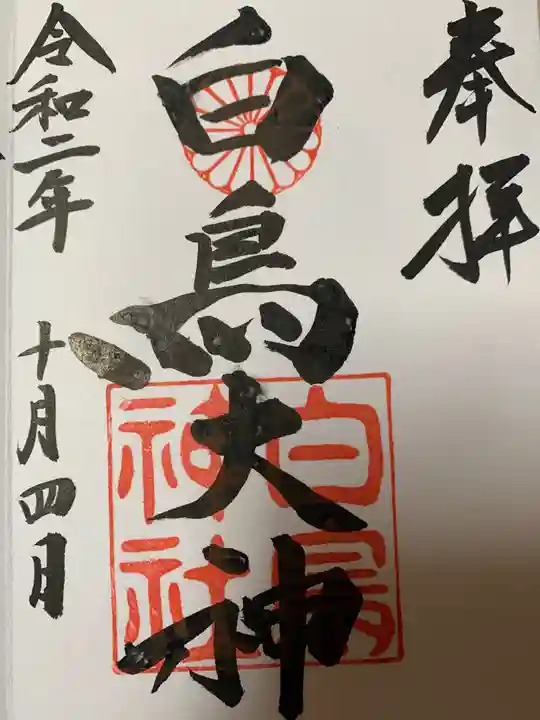 奉拝
白鳥大神
白鳥
神社
令和二年 十月四日